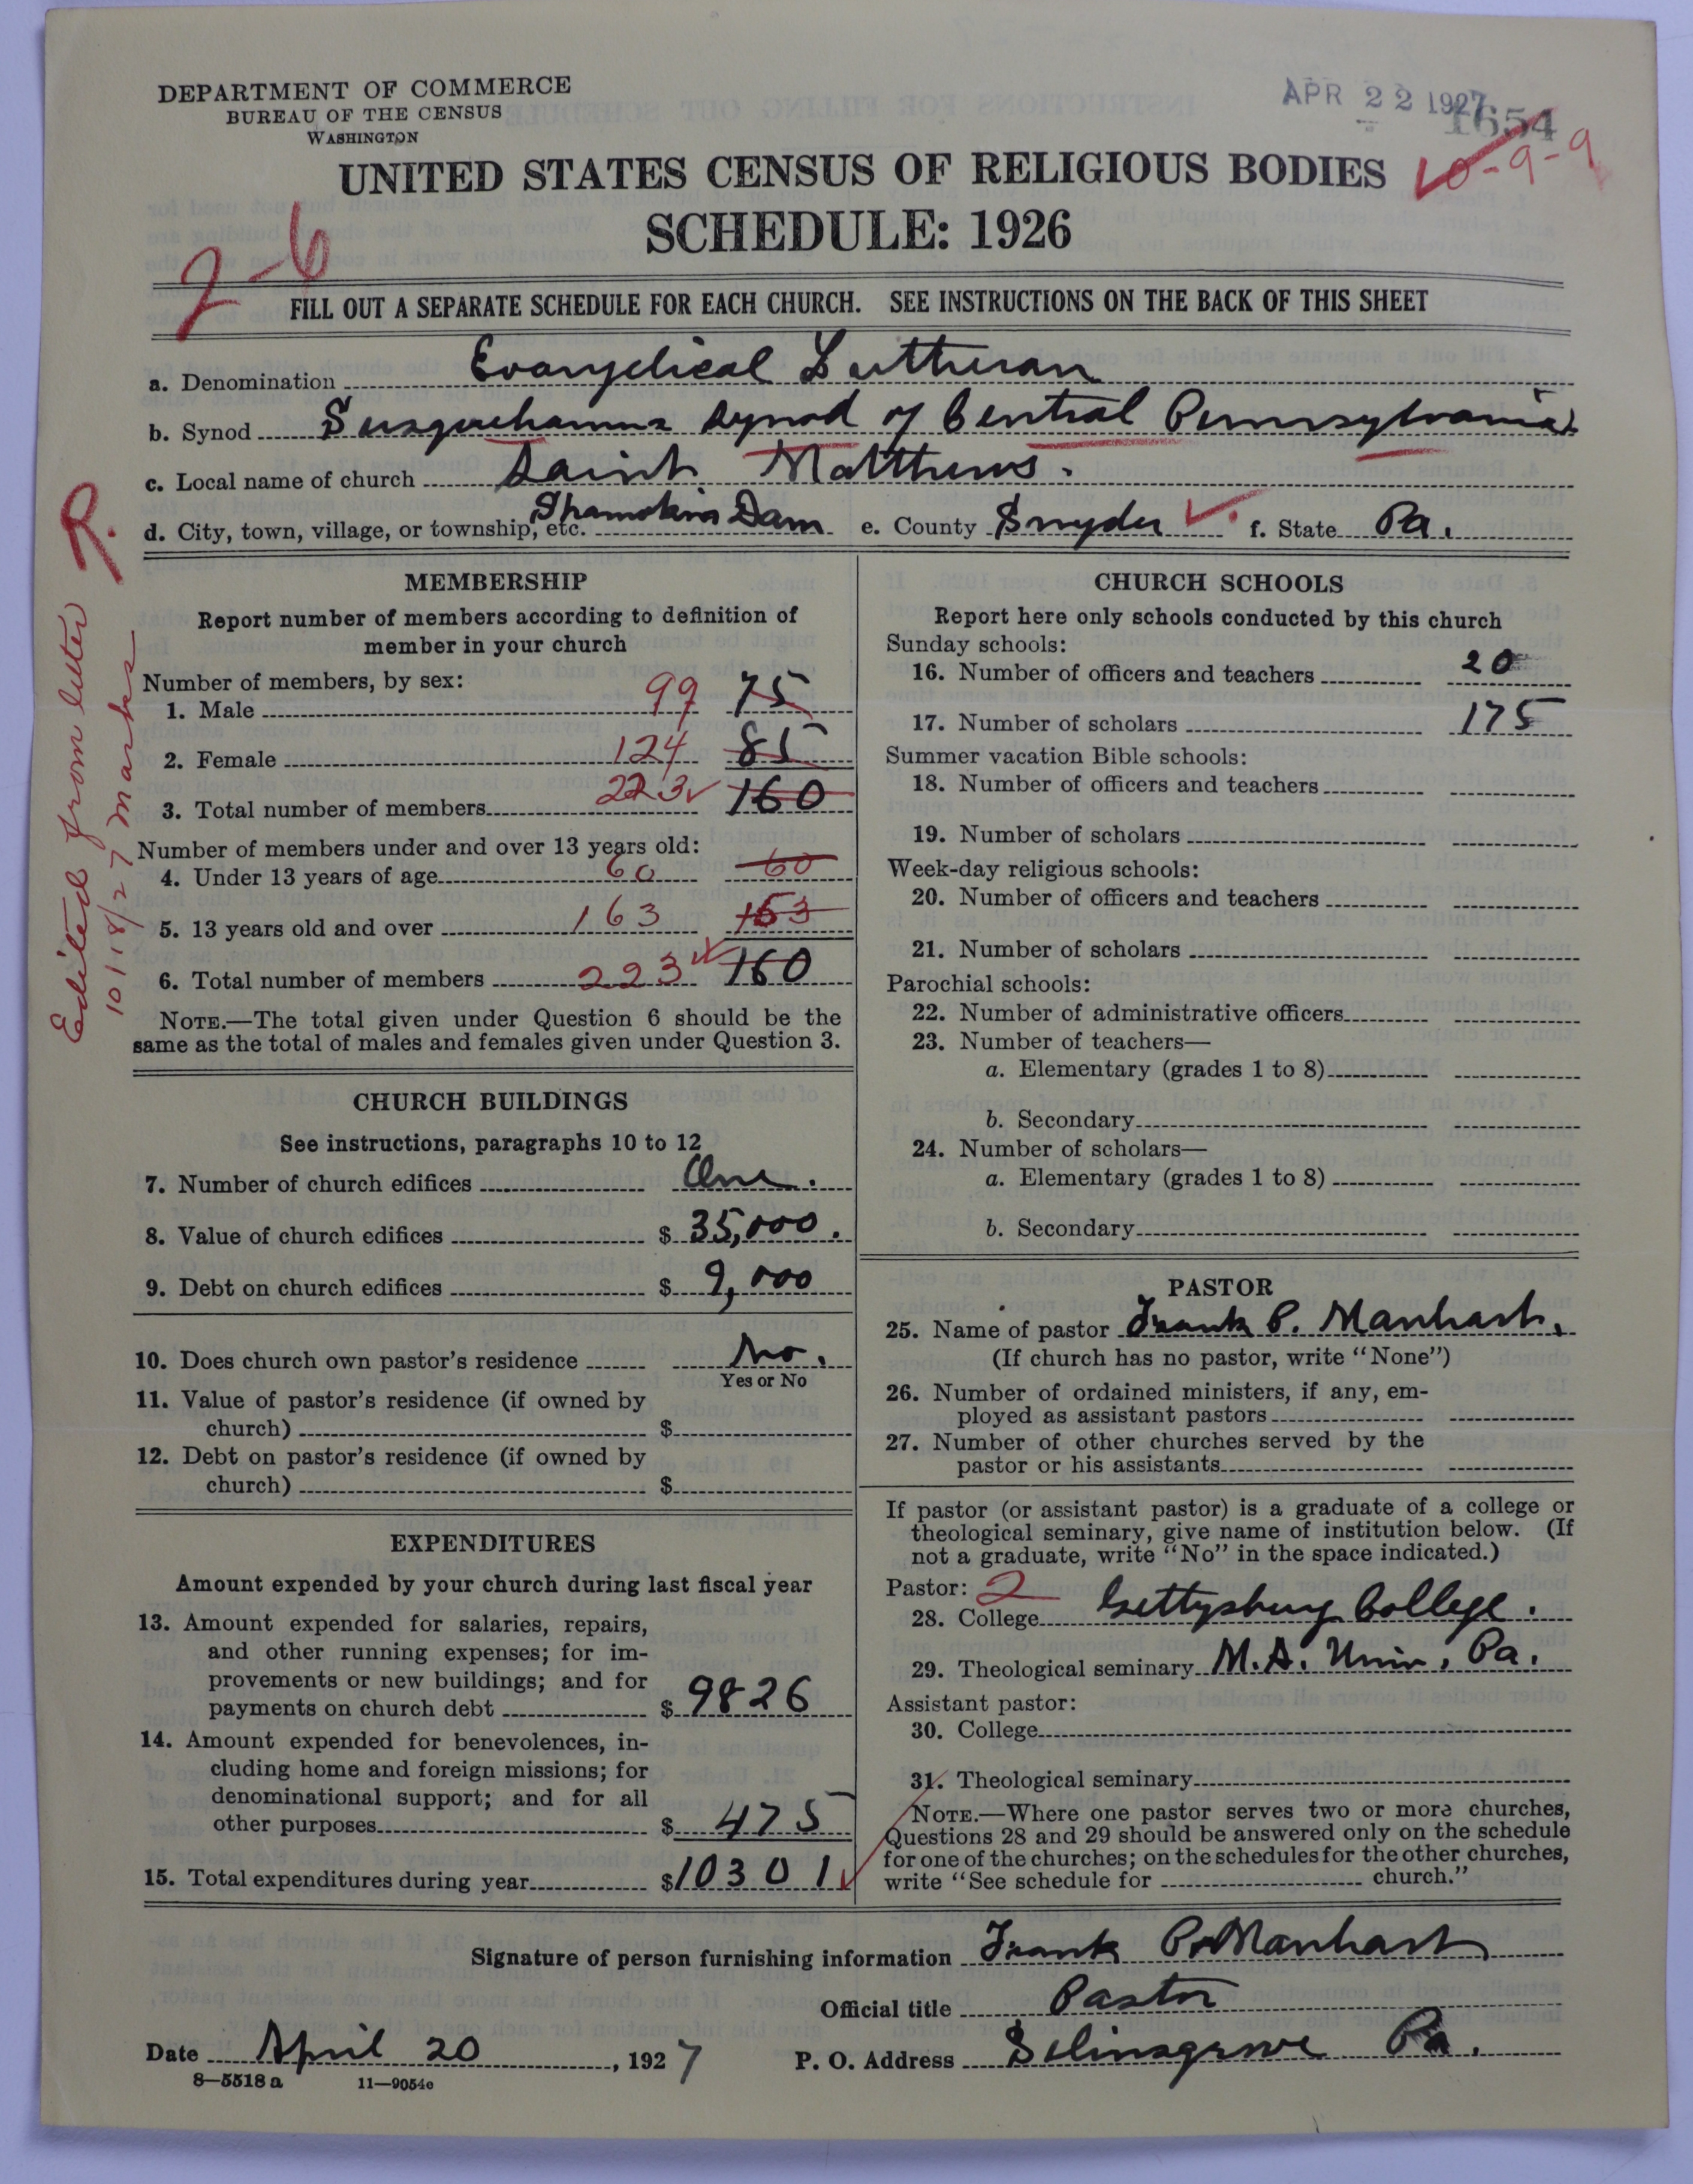 DEPARTMENT OF COMMERCE
BUREAU OF THE CENSUS
WASHINGTON
APR 22 1927
1654
10-9-9
UNITED STATES CENSUS OF RELIGIOUS BODIES
SCHEDULE: 1926
2-6
FILL OUT A SEPARATE SCHEDULE FOR EACH CHURCH. SEE INSTRUCTIONS ON THE BACK OF THIS SHEET
a. Denomination Evangelical Lutheran
b. Synod Susquehanna Synod of Central Pennsylvania
c. Local name of church Saint Matthews.
d. City, town, village, or township, etc. Shamokin Dam e. County Snyder f. State Pa.
R.
Edited from letter
10/18/27 Marks
MEMBERSHIP
Report number of members according to definition of
member in your church
Number of members, by sex:
1. Male 99 75
2. Female 124 85
3. Total number of members 223 160
Number of members under and over 13 years old:
4. Under 13 years of age 60 60
5. 13 years old and over 163 153
6. Total number of members 223 160
NOTE.—The total given under Question 6 should be the
same as the total of males and females given under Question 3.
CHURCH BUILDINGS
See instructions, paragraphs 10 to 12
7. Number of church edifices One.
8. Value of church edifices $ 35,000.
9. Debt on church edifices $ 9,000
10. Does church own pastor's residence No.
Yes or No
11. Value of pastor's residence (if owned by
church) $
12. Debt on pastor's residence (if owned by
church) $
EXPENDITURES
Amount expended by your church during last fiscal year
13. Amount expended for salaries, repairs,
and other running expenses; for im-
provements or new buildings; and for
payments on church debt $ 9826
14. Amount expended for benevolences, in-
cluding home and foreign missions; for
denominational support; and for all
other purposes $ 475
15. Total expenditures during year $ 10301
CHURCH SCHOOLS
Report here only schools conducted by this church
Sunday schools:
16. Number of officers and teachers 20
17. Number of scholars 175
Summer vacation Bible schools:
18. Number of officers and teachers
19. Number of scholars
Week-day religious schools:
20. Number of officers and teachers
21. Number of scholars
Parochial schools:
22. Number of administrative officers
23. Number of teachers—
a. Elementary (grades 1 to 8)
b. Secondary
24. Number of scholars—
a. Elementary (grades 1 to 8)
b. Secondary
PASTOR
25. Name of pastor Frank P. Manhart.
(If church has no pastor, write "None")
26. Number of ordained ministers, if any, em-
ployed as assistant pastors
27. Number of other churches served by the
pastor or his assistants
If pastor (or assistant pastor) is a graduate of a college or
theological seminary, give name of institution below. (If
not a graduate, write "No" in the space indicated.)
Pastor: 2
28. College Gettysburg College.
29. Theological seminary M.A. Univ, Pa.
Assistant pastor:
30. College
31. Theological seminary
NOTE.—Where one pastor serves two or more churches,
Questions 28 and 29 should be answered only on the schedule
for one of the churches; on the schedules for the other churches,
write "See schedule for church."
Signature of person furnishing information Frank P. Manhart
Official title Pastor
Date April 20, 1927 P. O. Address Selinsgrove Pa.
8—5518a 11—9054c